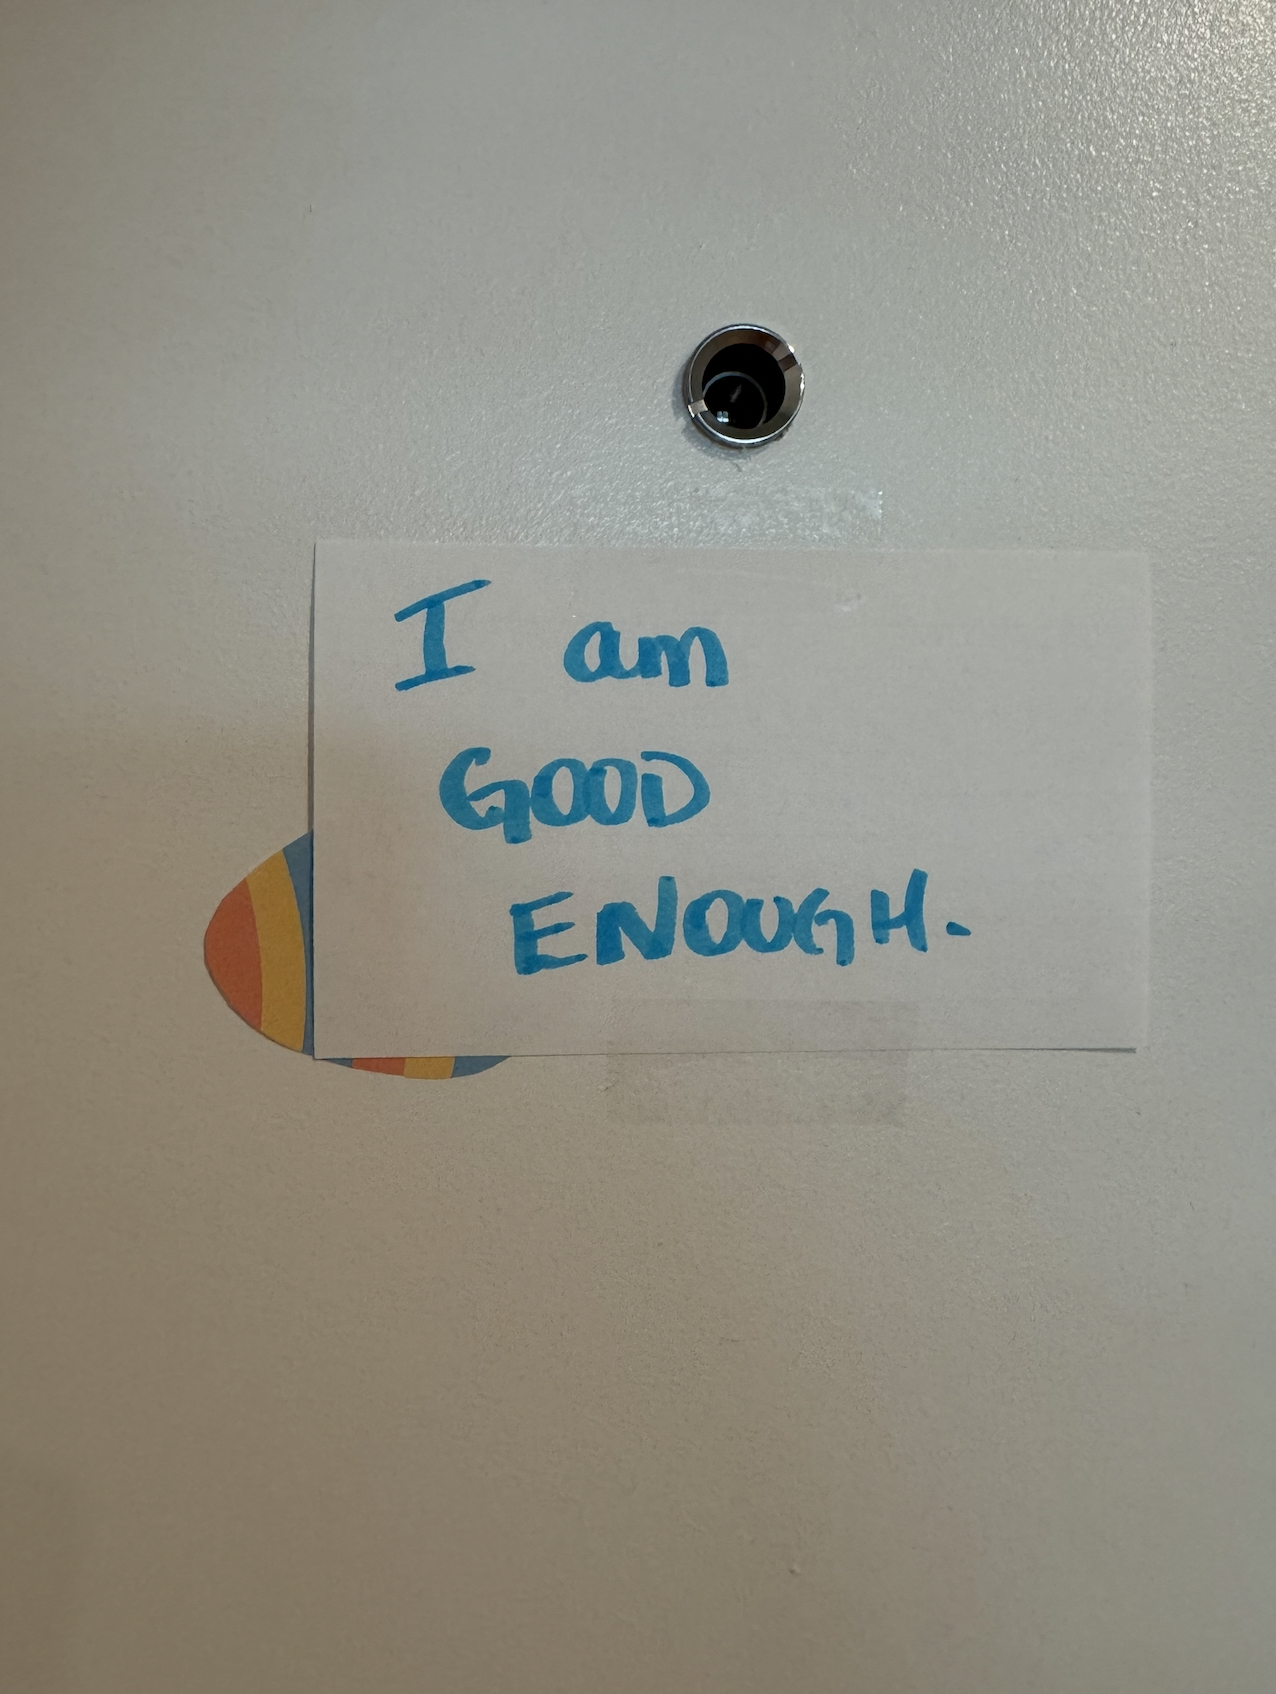 I am
GOOD
ENOUGH.